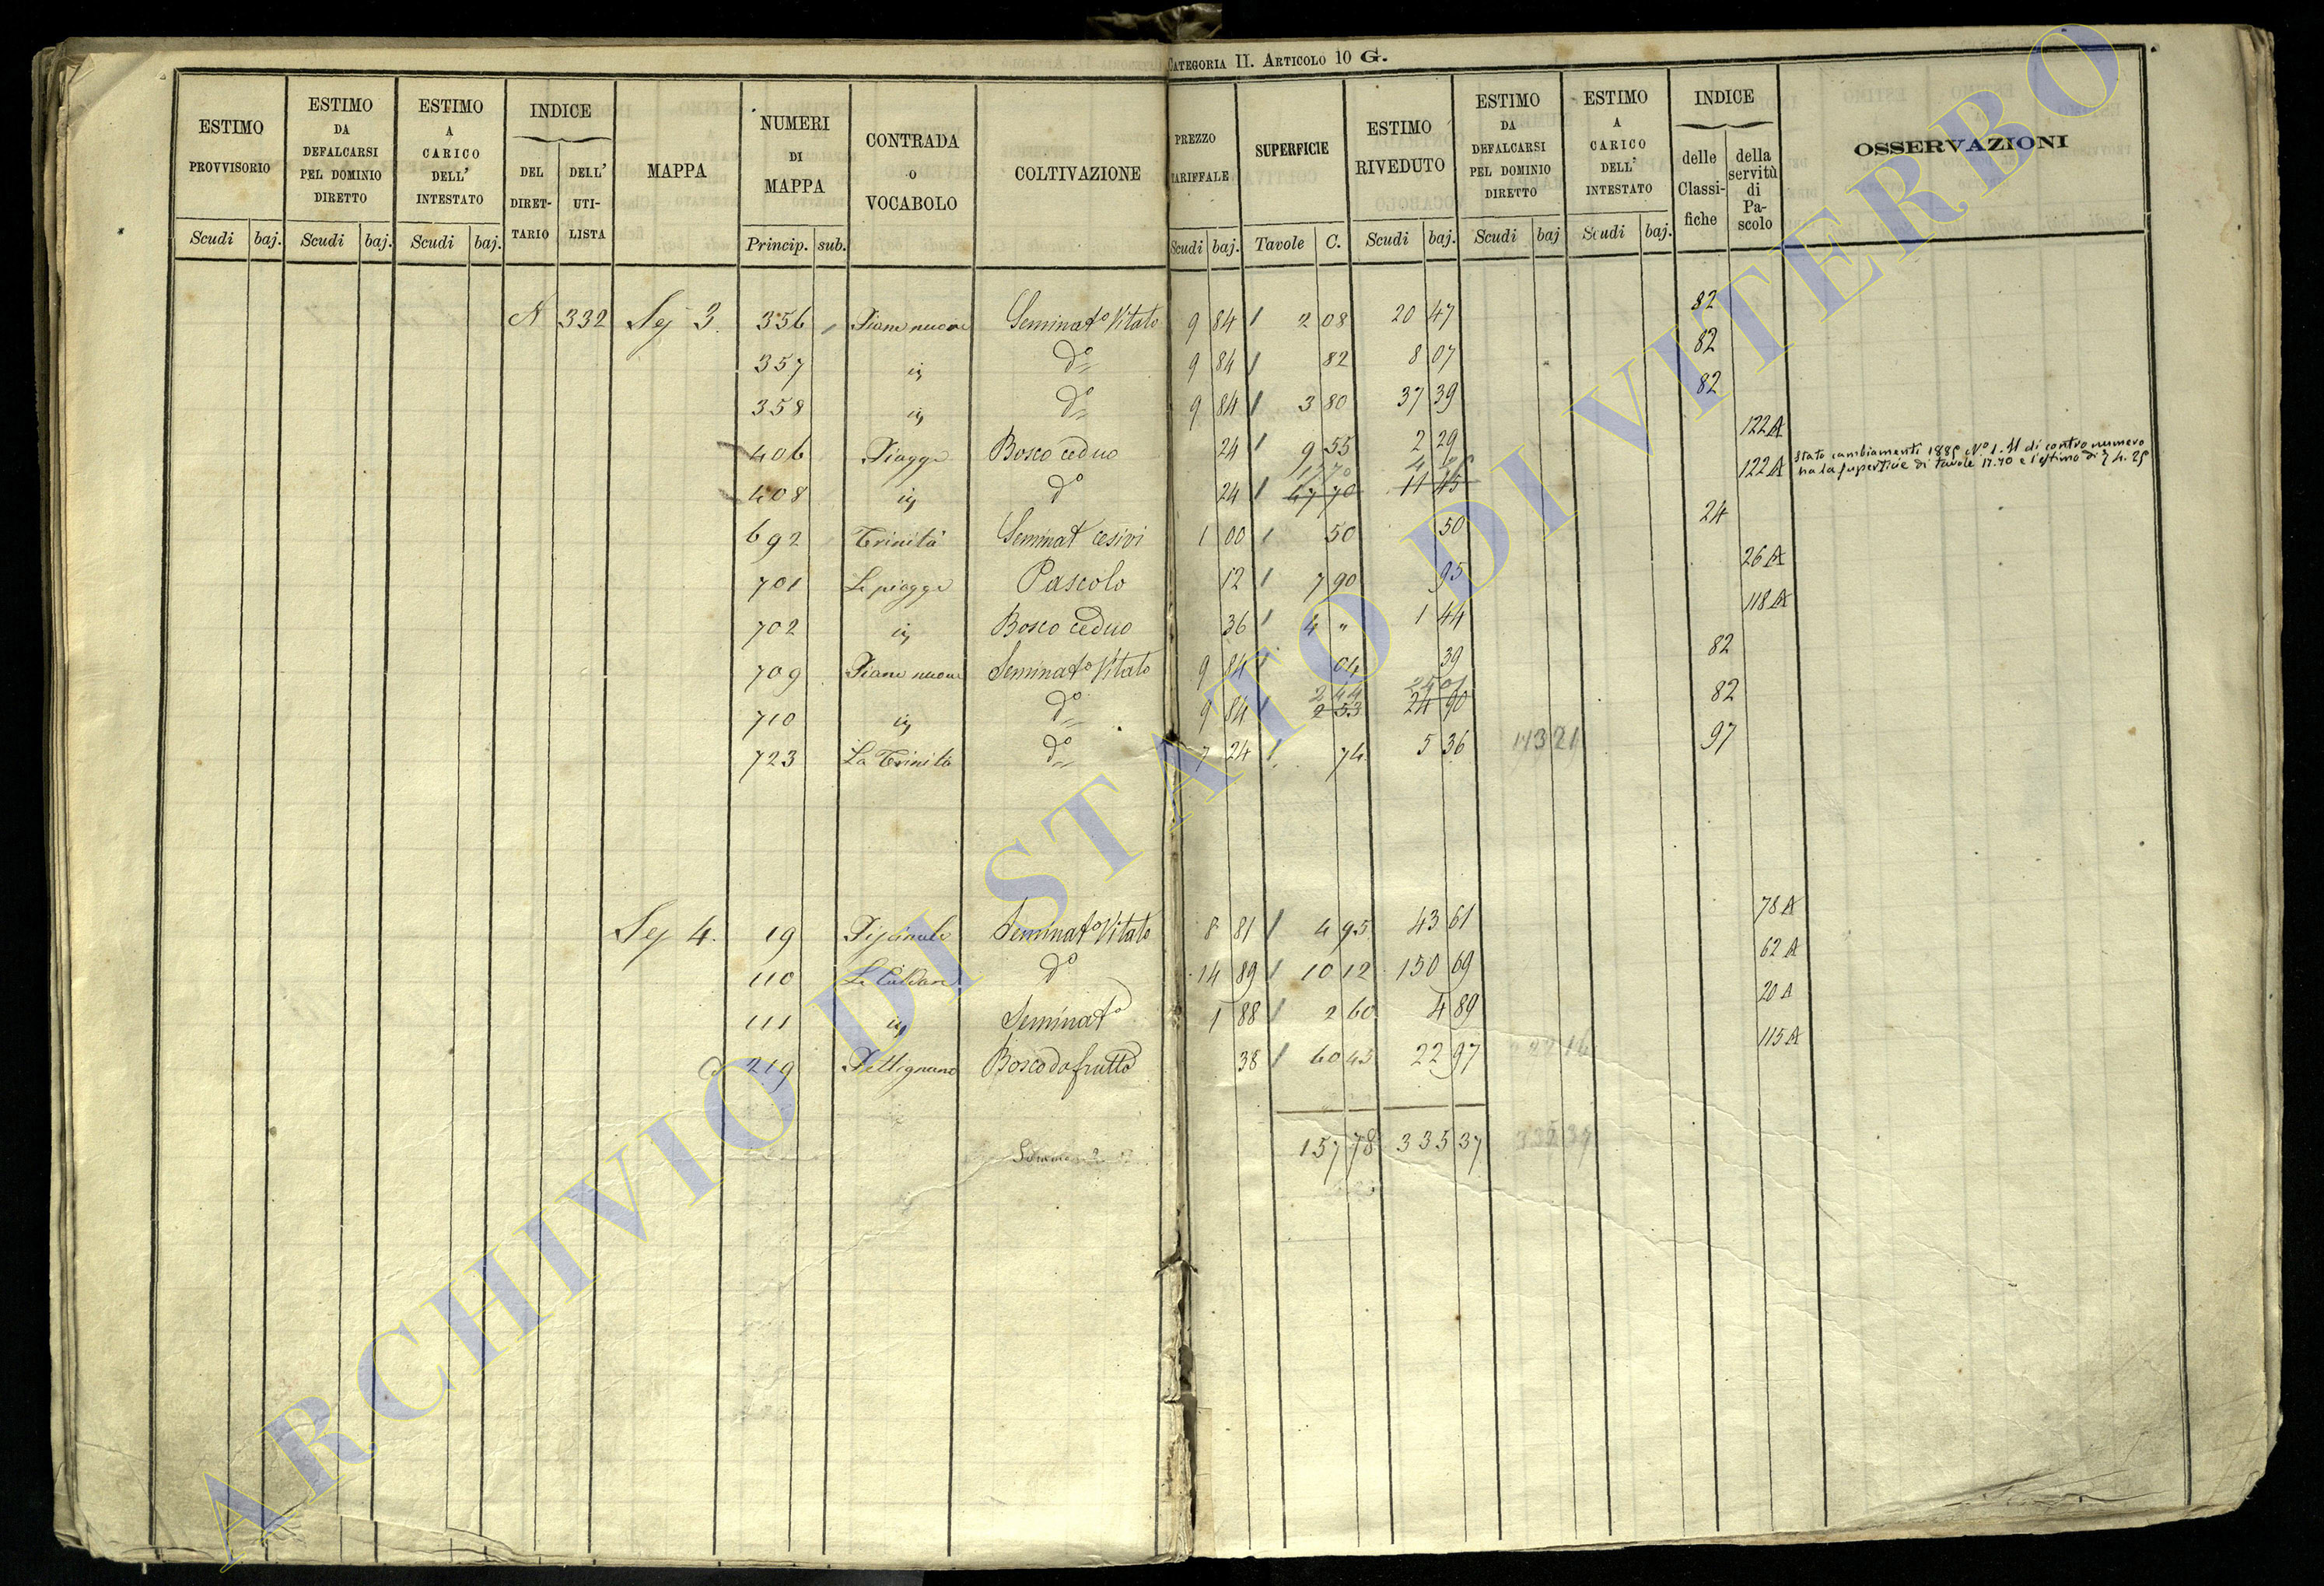 CATEGORIA II. ARTICOLO 10 G.
ESTIMO PROVVISORIO
ESTIMO DA DEFALCARSI PEL DOMINIO DIRETTO
ESTIMO A CARICO DELL' INTESTATO
INDICE
DEL DIRET-TARIO
DELL' UTI-LISTA
MAPPA
NUMERI DI MAPPA
CONTRADA o VOCABOLO
COLTIVAZIONE
PREZZO TARIFFALE
SUPERFICIE
ESTIMO RIVEDUTO
ESTIMO DA DEFALCARSI PEL DOMINIO DIRETTO
ESTIMO A CARICO DELL' INTESTATO
INDICE
delle Classi-fiche
della servitù di Pa-scolo
OSSERVAZIONI
Scudi baj. Scudi baj. Scudi baj. Princip. sub. Scudi baj. Tavole C. Scudi baj. Scudi baj Scudi baj.
N 332 Sez 3. 356 Piane nuove Seminato Vitato 9 84 2 08 20 47 82
357 id do 9 84 82 8 07 82
358 id do 9 84 3 80 37 39 82
406 Piagge Bosco ceduo 24 9 55 2 29 122A
408 id do 24 17 70 47 70 4 25 11 45 122A
Stato cambiamenti 1885 No 1. Il di contro numero
ha la superficie di tavole 17.70 e l'estimo di 4.25
692 Trinità Seminat cesivi 1 00 50 50 24
701 Le piagge Pascolo 12 7 90 95 26A
702 id Bosco ceduo 36 4 " 1 44 118A
709 Piane nuove Seminato Vitato 9 84 04 39 82
710 id do 9 84 2 44 2 53 24 01 24 90 82
723 La Trinità do 7 24 74 5 36 113 21 97
Sez 4. 19 Seminato Vitato 8 81 4 95 43 61 78A
110 do 14 89 10 12 150 69 62A
111 id Seminato 1 88 2 60 4 89 20A
219 Pettignano Bosco da frutto 38 60 45 22 97 222 16 115A
157 78 335 37 335 37
ARCHIVIO DI STATO DI VITERBO